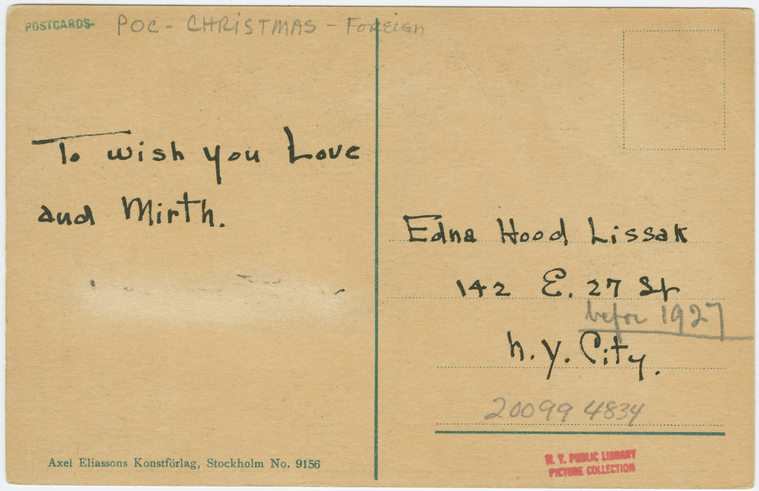 POSTCARDS-
POC - CHRISTMAS - Foreign
To wish you Love
and Mirth.
Edna Hood Lissak
142 E. 27 St
before 1927
N. Y. City.
20099 4834
Axel Eliassons Konstförlag, Stockholm No. 9156
N. Y. PUBLIC LIBRARY
PICTURE COLLECTION